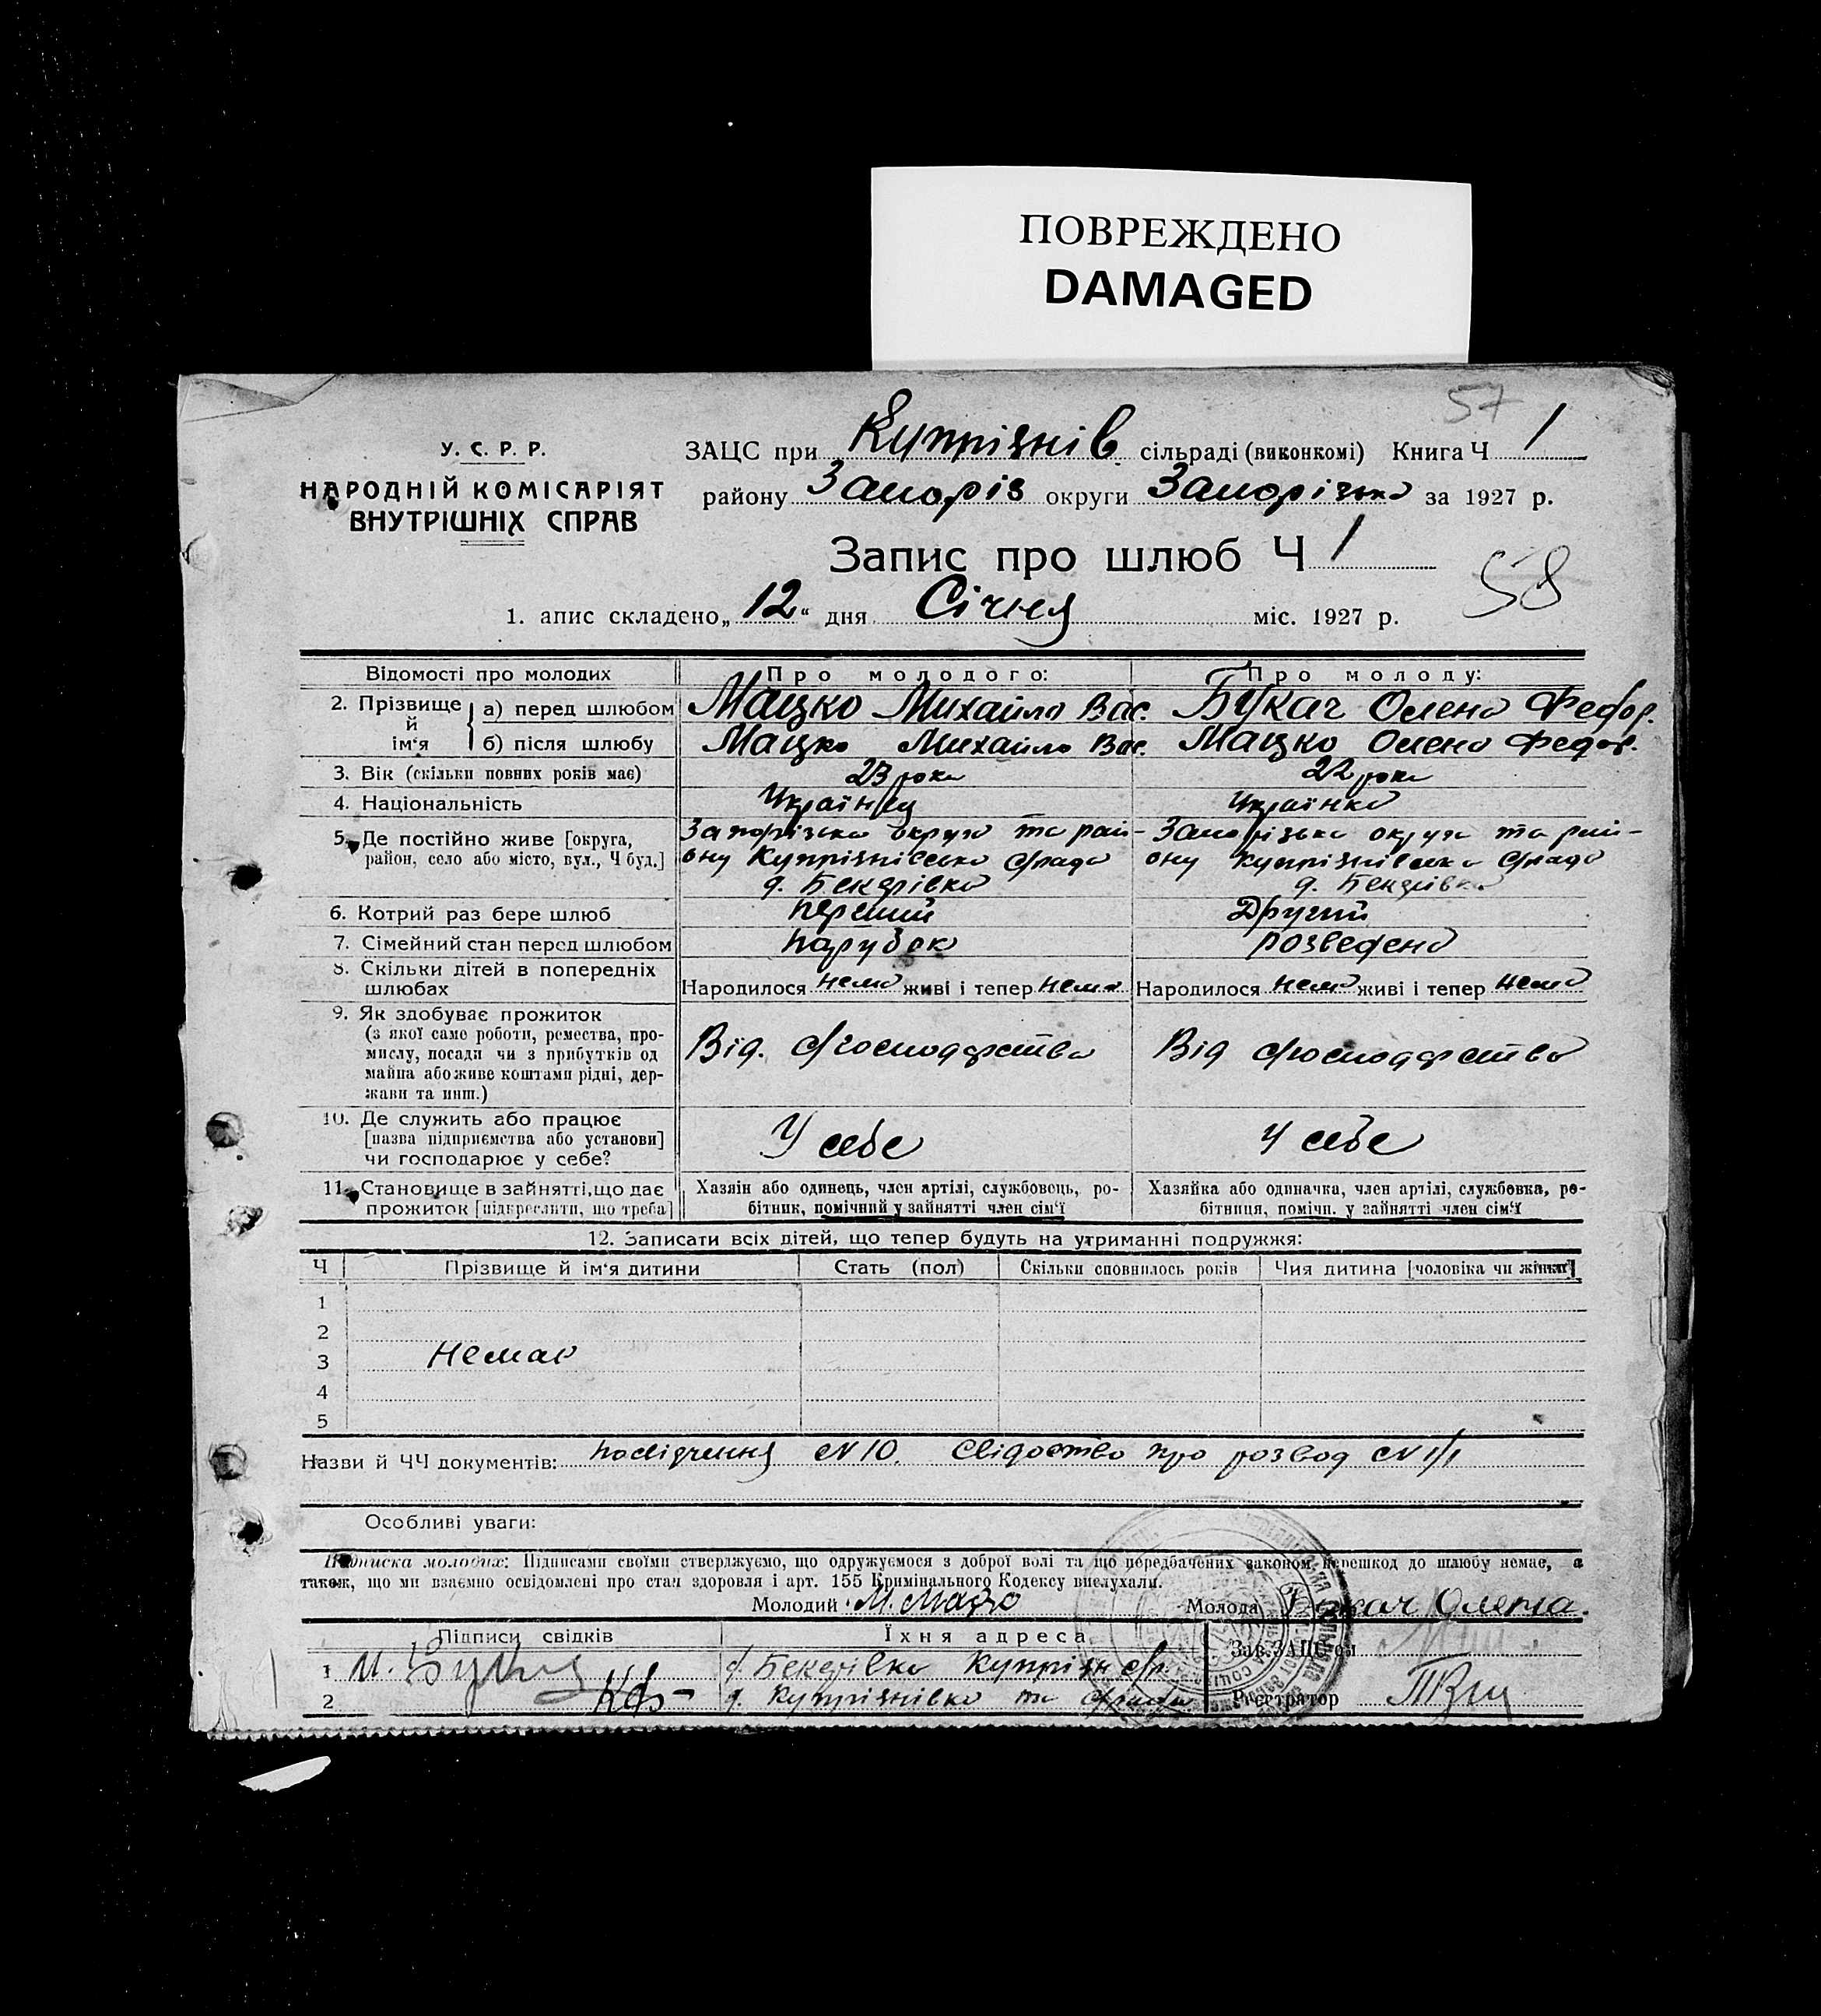 ПОВРЕЖДЕНО
DAMAGED
57
У. С. Р. Р.
НАРОДНІЙ КОМІСАРІЯТ
ВНУТРІШНІХ СПРАВ
ЗАЦС при Купрізнів. сільраді (виконкомі) Книга Ч 1
району Запоріз округи Запорізька за 1927 р.
Запис про шлюб Ч 1
58
1. апис складено „12“ дня Січня міс. 1927 р.
Відомості про молодих Про молодого: Про молоду:
2. Прізвище й ім'я а) перед шлюбом Мацко Михайло Вас. Букач Олена Федор.
б) після шлюбу Мацко Михайло Вас. Мацко Олена Федор.
3. Вік (скільки повних років має) 23 роки 22 роки
4. Національність Українец Українка
5. Де постійно живе [округа, район, село або місто, вул., Ч буд.] Запорізька округа та рай-
ону Купрізнівська с/рада
д. Бекарівка
Запорізька округа та рай-
ону Купрізнівська с/рада
д. Бекарівка
6. Котрий раз бере шлюб перший Другий
7. Сімейний стан перед шлюбом парубок розведена
8. Скільки дітей в попередніх шлюбах Народилося нема живі і тепер нема Народилося нема живі і тепер нема
9. Як здобуває прожиток
(з якої саме роботи, ремества, про-
мислу, посади чи з прибутків од
майна або живе коштами рідні, дер-
жави та инш.)
Від. с/господарства Від с/господарства
10. Де служить або працює
[назва підприємства або установи]
чи господарює у себе?
У себе У себе
11. Становище в зайнятті, що дає
прожиток [підкреслити, що треба]
Хазяїн або одинець, член артілі, службовець, ро-
бітник, помічний у зайнятті член сім'ї
Хазяйка або одиначка, член артілі, службовка, ро-
бітниця, помічн. у зайнятті член сім'ї
12. Записати всіх дітей, що тепер будуть на утриманні подружжя:
Ч Прізвище й ім'я дитини Стать (пол) Скільки сповнилось років Чия дитина [чоловіка чи жінки]
1
2
3 Немає
4
5
Назви й ЧЧ документів: посвідчення №10. Свідоство про розвод № 1/1
Особливі уваги:
Підписка молодих: Підписами своїми стверджуємо, що одружуємося з доброї волі та що передбачених законом перешкод до шлюбу немає, а
також, що ми взаємно освідомлені про стан здоровля і арт. 155 Кримінального Кодексу вислухали.
Молодий М. Мацко Молода Букач Олена.
Підписи свідків Їхня адреса Зав. ЗАЦС'ом
1 с/ Бекарівка Купрізн с/р.
2 д. Купрізнівка та с/рада Реєстратор